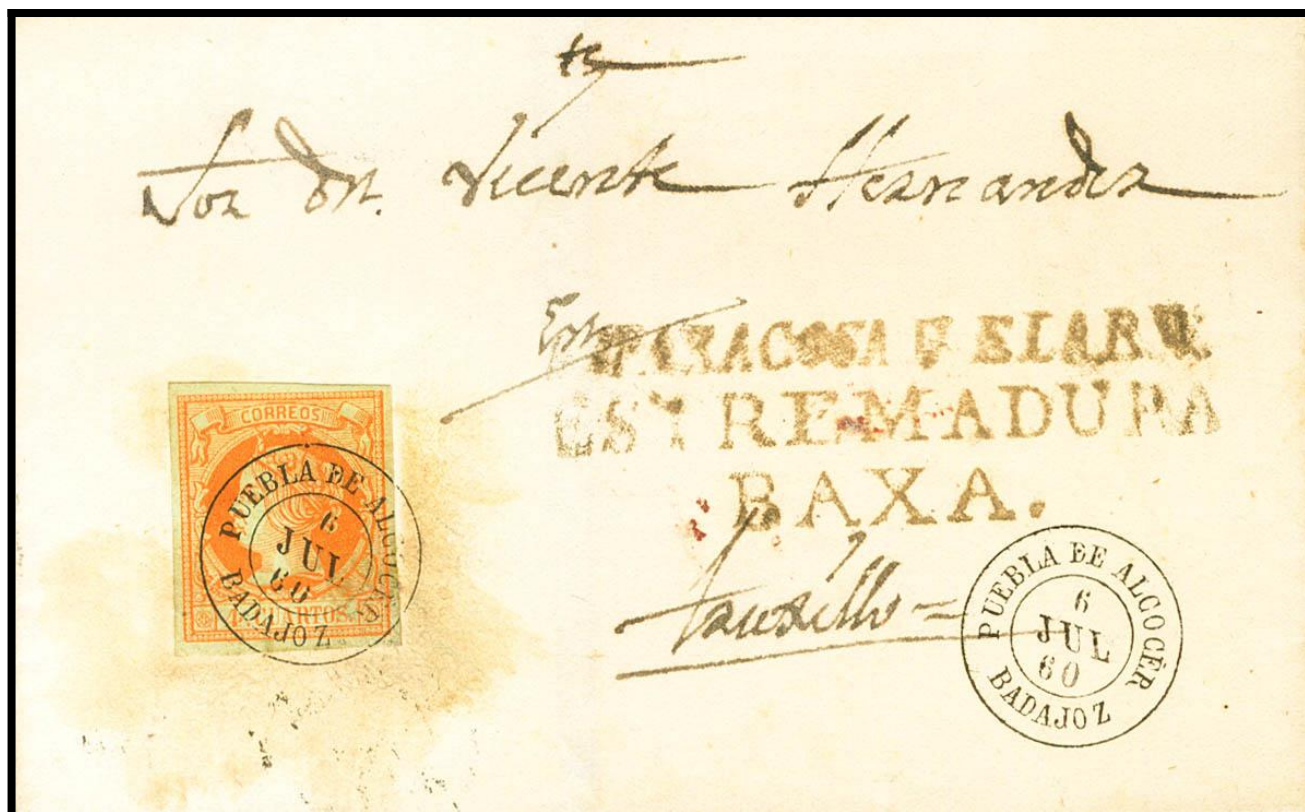 Sor Dn. Vicente Hernandez
ESTREMADURA
BAXA.
CORREOS
CUARTOS
PUEBLA DE ALCOCER
6
JUL
60
BADAJOZ
PUEBLA DE ALCOCÉR
6
JUL
60
BADAJOZ